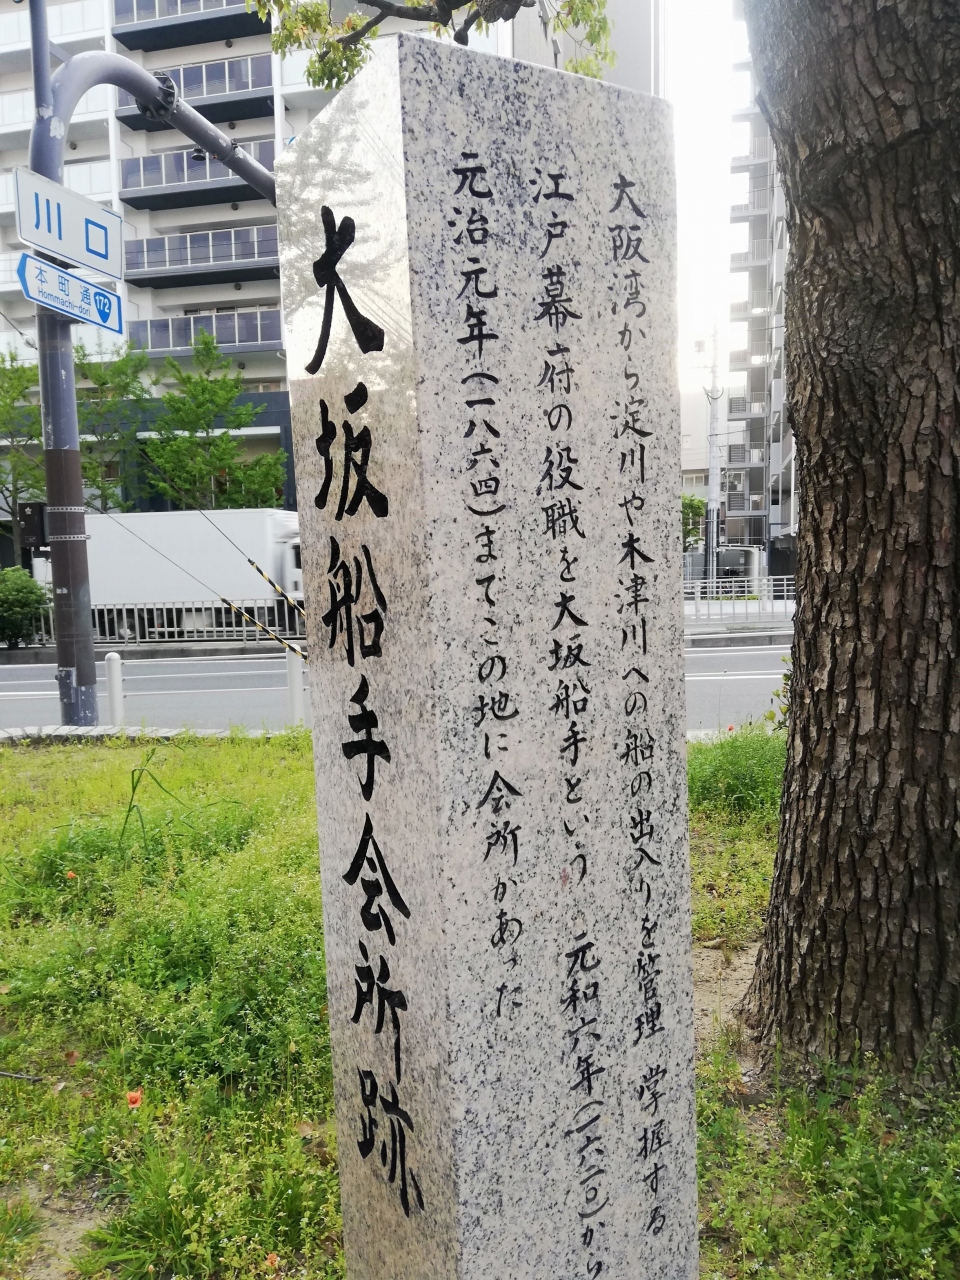 川口
本町通
Hommachi-dori
172
大坂船手会所跡
大阪湾から淀川や木津川への船の出入りを管理 掌握する
江戸幕府の役職を大坂船手という 元和六年(一六二〇)から
元治元年(一八六四)まてこの地に会所かあった